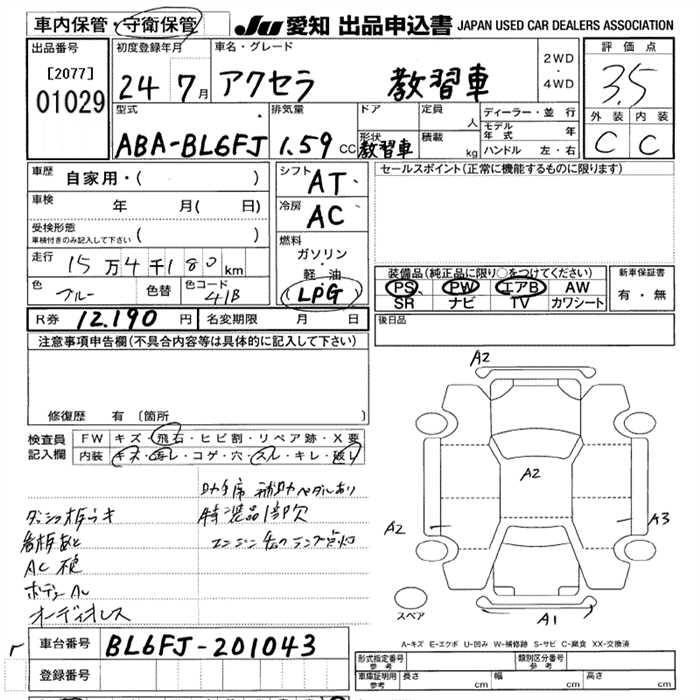 車内保管・守衛保管
JU 愛知 出品申込書 JAPAN USED CAR DEALERS ASSOCIATION
出品番号
[2077]
01029
初度登録年月
24 7月
車名・グレード
アクセラ 教習車
2WD
・
4WD
評価点
3.5
外装 内装
C C
型式
ABA-BL6FJ
排気量
1.59 CC
ドア
形状
教習車
定員
人
積載
kg
ディーラー・並行
モデル年式 年
ハンドル 左・右
車歴 自家用・( )
車検 年 月( 日)
受検形態
車検付きのみ記入して下さい ( )
走行 15万4千180km
色 ブルー 色替 色コード 41B
シフト
AT
冷房
AC
燃料
ガソリン
・
軽・油
LPG
セールスポイント(正常に機能するものに限ります)
装備品(純正品に限り○をつけてください)
PS PW エアB AW
SR ナビ TV カワシート
新車保証書
有・無
R券 12.190 円 名変期限 月 日
後日品
注意事項申告欄(不具合内容等は具体的に記入して下さい)
修復歴 有 〔箇所
検査員記入欄
FW キズ・飛石・ヒビ割・リペア跡・X要
内装 キズ・汚レ・コゲ・穴・スレ・キレ・破レ
助手席 補助ペダルあり
ダッシュ板ウキ 特装品1部欠
看板あと エンジンチェックランプ点灯
AC
オーディオレス
A2
A2
A2
A3
A1
スペア
A-キズ E-エクボ U-凹み W-補修跡 S-サビ C-腐食 XX-交換済
車台番号 BL6FJ-201043
登録番号
形式指定番号 参考
類別区分番号 参考
車庫証明用 参考 長さ cm 幅 cm 高さ cm